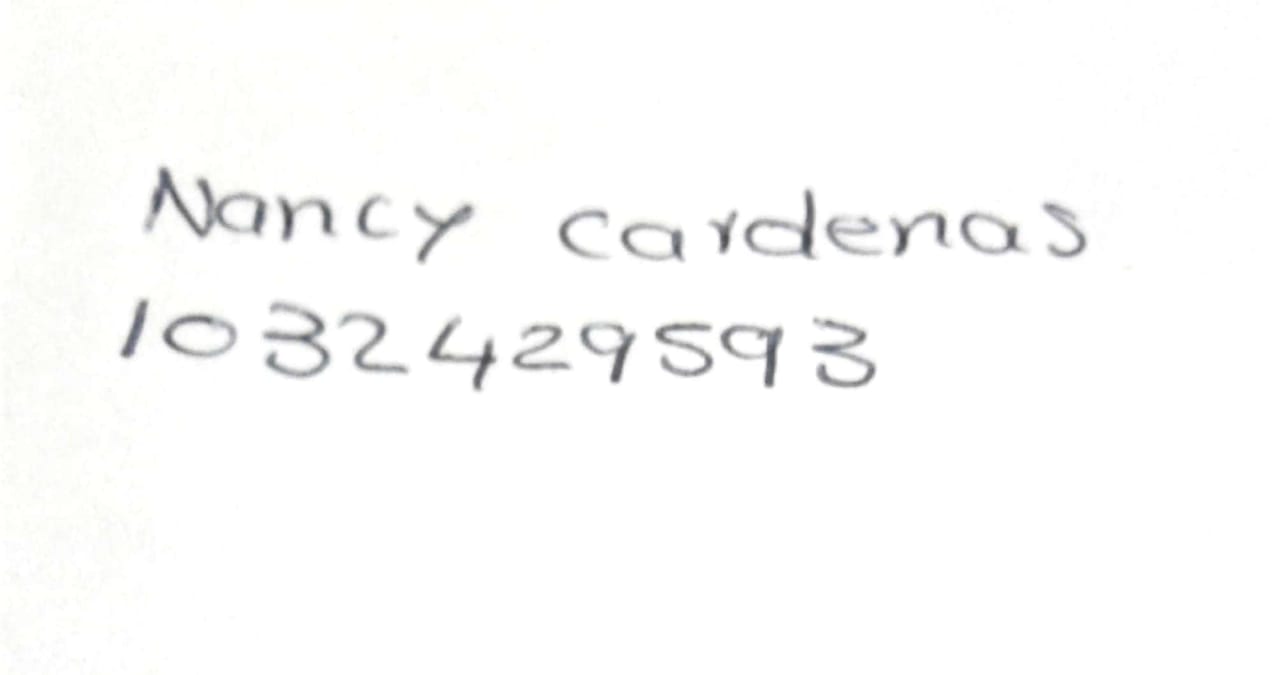 Nancy cardenas
1032429593